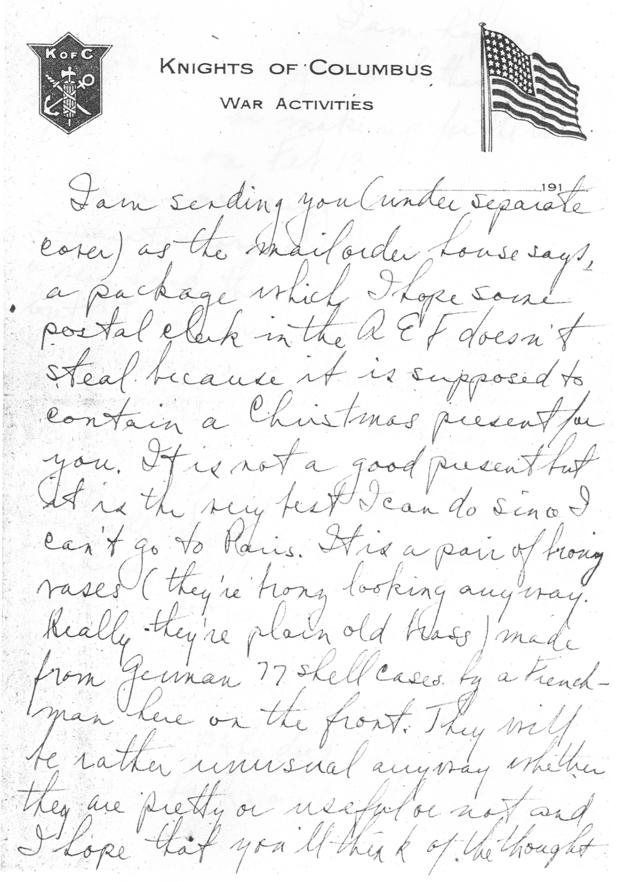 K OF C
KNIGHTS OF COLUMBUS
WAR ACTIVITIES
191
I am sending you (under separate
cover) as the mail order house says,
a package which I hope some
postal clerk in the A E F doesn't
steal because it is supposed to
contain a Christmas present for
you. It is not a good present but
it is the very best I can do since I
can't go to Paris. It is a pair of bronz
vases (they're bronz looking anyway.
Really they're plain old brass) made
from German 77 shell cases by a French-
man here on the front. They will
be rather unusual anyway whether
they are pretty or useful or not and
I hope that you'll think of the thought